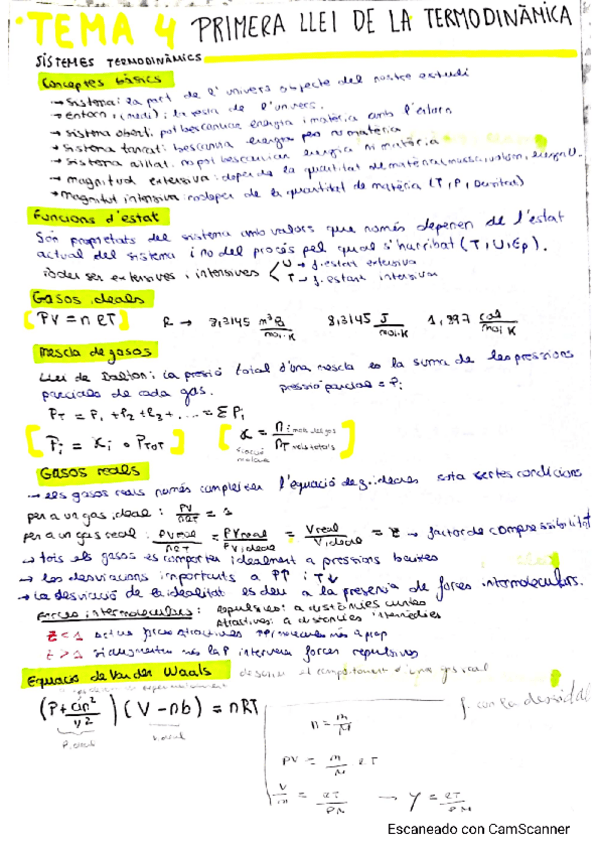 TEMA 4 PRIMERA LLEI DE LA TERMODINÀMICA
SISTEMES TERMODINÀMICS
Conceptes bàsics
→ Sistema: la part de l'univers objecte del nostre estudi
→ entorn (medi): la resta de l'univers.
→ sistema obert: pot bescanviar energia i matèria amb l'entorn
→ sistema tancat: bescanvia energia però no matèria
→ sistema aïllat: no pot bescanviar energia ni matèria
→ magnitud extensiva: depèn de la quantitat de matèria (massa, volum, energia U.
→ magnitut intensiva: no depèn de la quantitat de matèria (T, P, Densitat)
Funcions d'estat
Són propietats del sistema amb valors que només depenen de l'estat
actual del sistema i no del procés pel qual s'hi arribat (T, U, Ep).
Poden ser extensives i intensives < U → f. estat extensiva
T → f. estat intensiva
Gasos ideals
[PV = n RT] R → 8,3145 m³ / mol·K 8,3145 J / mol·K 1,987 cal / mol·K
Mescla de gasos
Llei de Dalton: La pressió total d'una mescla es la suma de les pressions
parcials de cada gas. pressió parcial = Pi
PT = P1 + P2 + P3 + .... = Σ Pi
[Pi = xi · PTOT] [x = ni mols del gas / nT mols totals]
fracció molar
Gasos reals
→ els gasos reals només compleixen l'equació de g. ideals sota certes condicions
per a un gas ideal: PV / nRT = 1
per a un gas real: PV real / nRT = PV real / PV ideal = V real / V ideal = Z → factor de compressibilitat
→ tots els gasos es comporten idealment a pressions baixes
→ les desviacions importants a P↑ i T↓
→ La desviació de la idealitat es deu a la presencia de forces intermoleculars.
Forces intermoleculars: repulsives: a distàncies curtes
Atractives: a distàncies intermèdies
Z < 1 actua forces atractives
Z > 1 si augmenta més la P intervenen forces repulsives
Equació de Van der Waals descriu el comportament d'un gas real
(P + an² / V²) (V - nb) = nRT
n = m / M
PV = m / M RT
V / m = RT / PM → = RT / PM
Escaneado con CamScanner